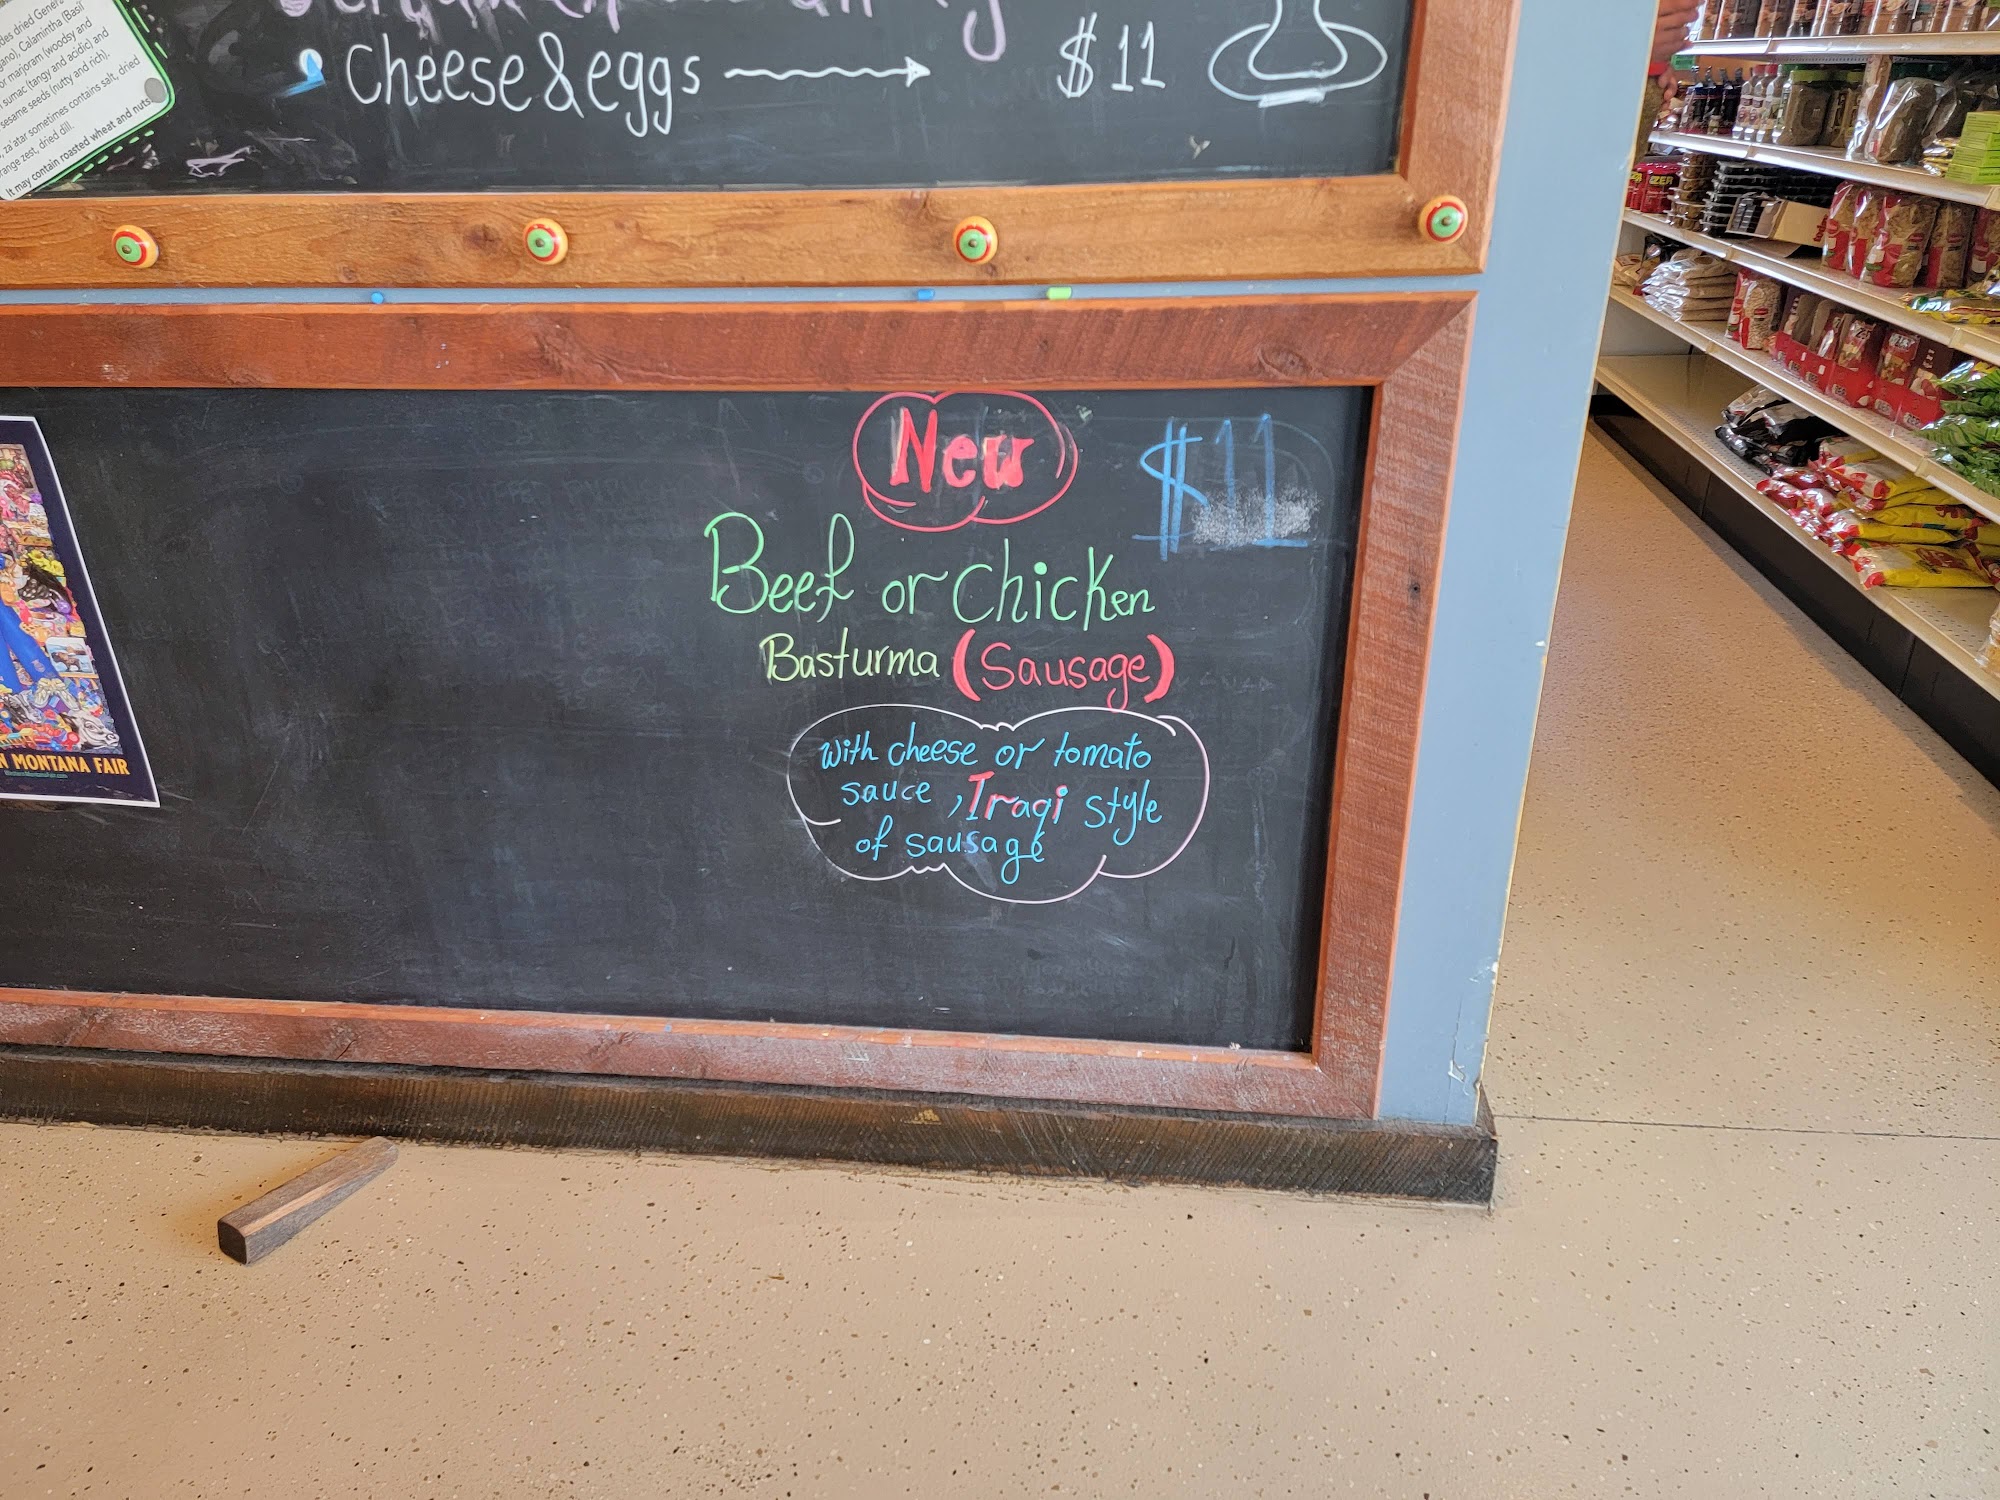 Calamintha (Basil
or marjoram (woodsy and
sumac (tangy and acidic) and
sesame seeds (nutty and rich).
za'atar sometimes contains salt, dried
orange zest, dried dill.
It may contain roasted wheat and nuts
Cheese & eggs $11
New
$11
Beef or Chicken
Basturma (Sausage)
with cheese or tomato
sauce, Iraqi style
of sausage
MONTANA FAIR